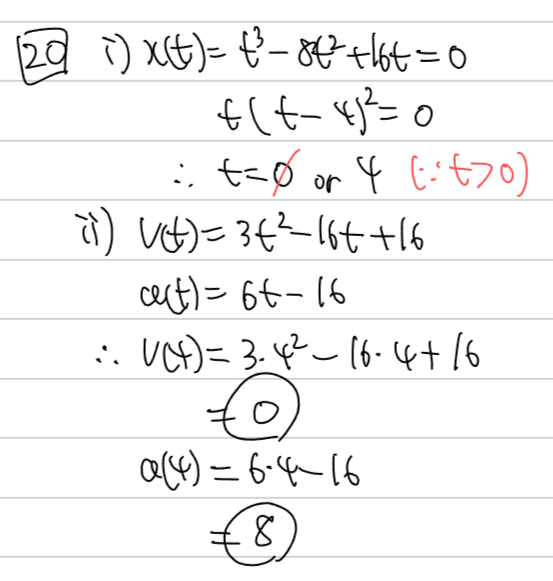 20 i) x(t) = t³ - 8t² + 16t = 0
t(t - 4)² = 0
∴ t = 0 or 4 (∵ t > 0)
ii) v(t) = 3t² - 16t + 16
a(t) = 6t - 16
∴ v(4) = 3·4² - 16·4 + 16
= 0
a(4) = 6·4 - 16
= 8